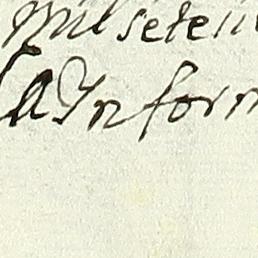 mil sete
la Infor